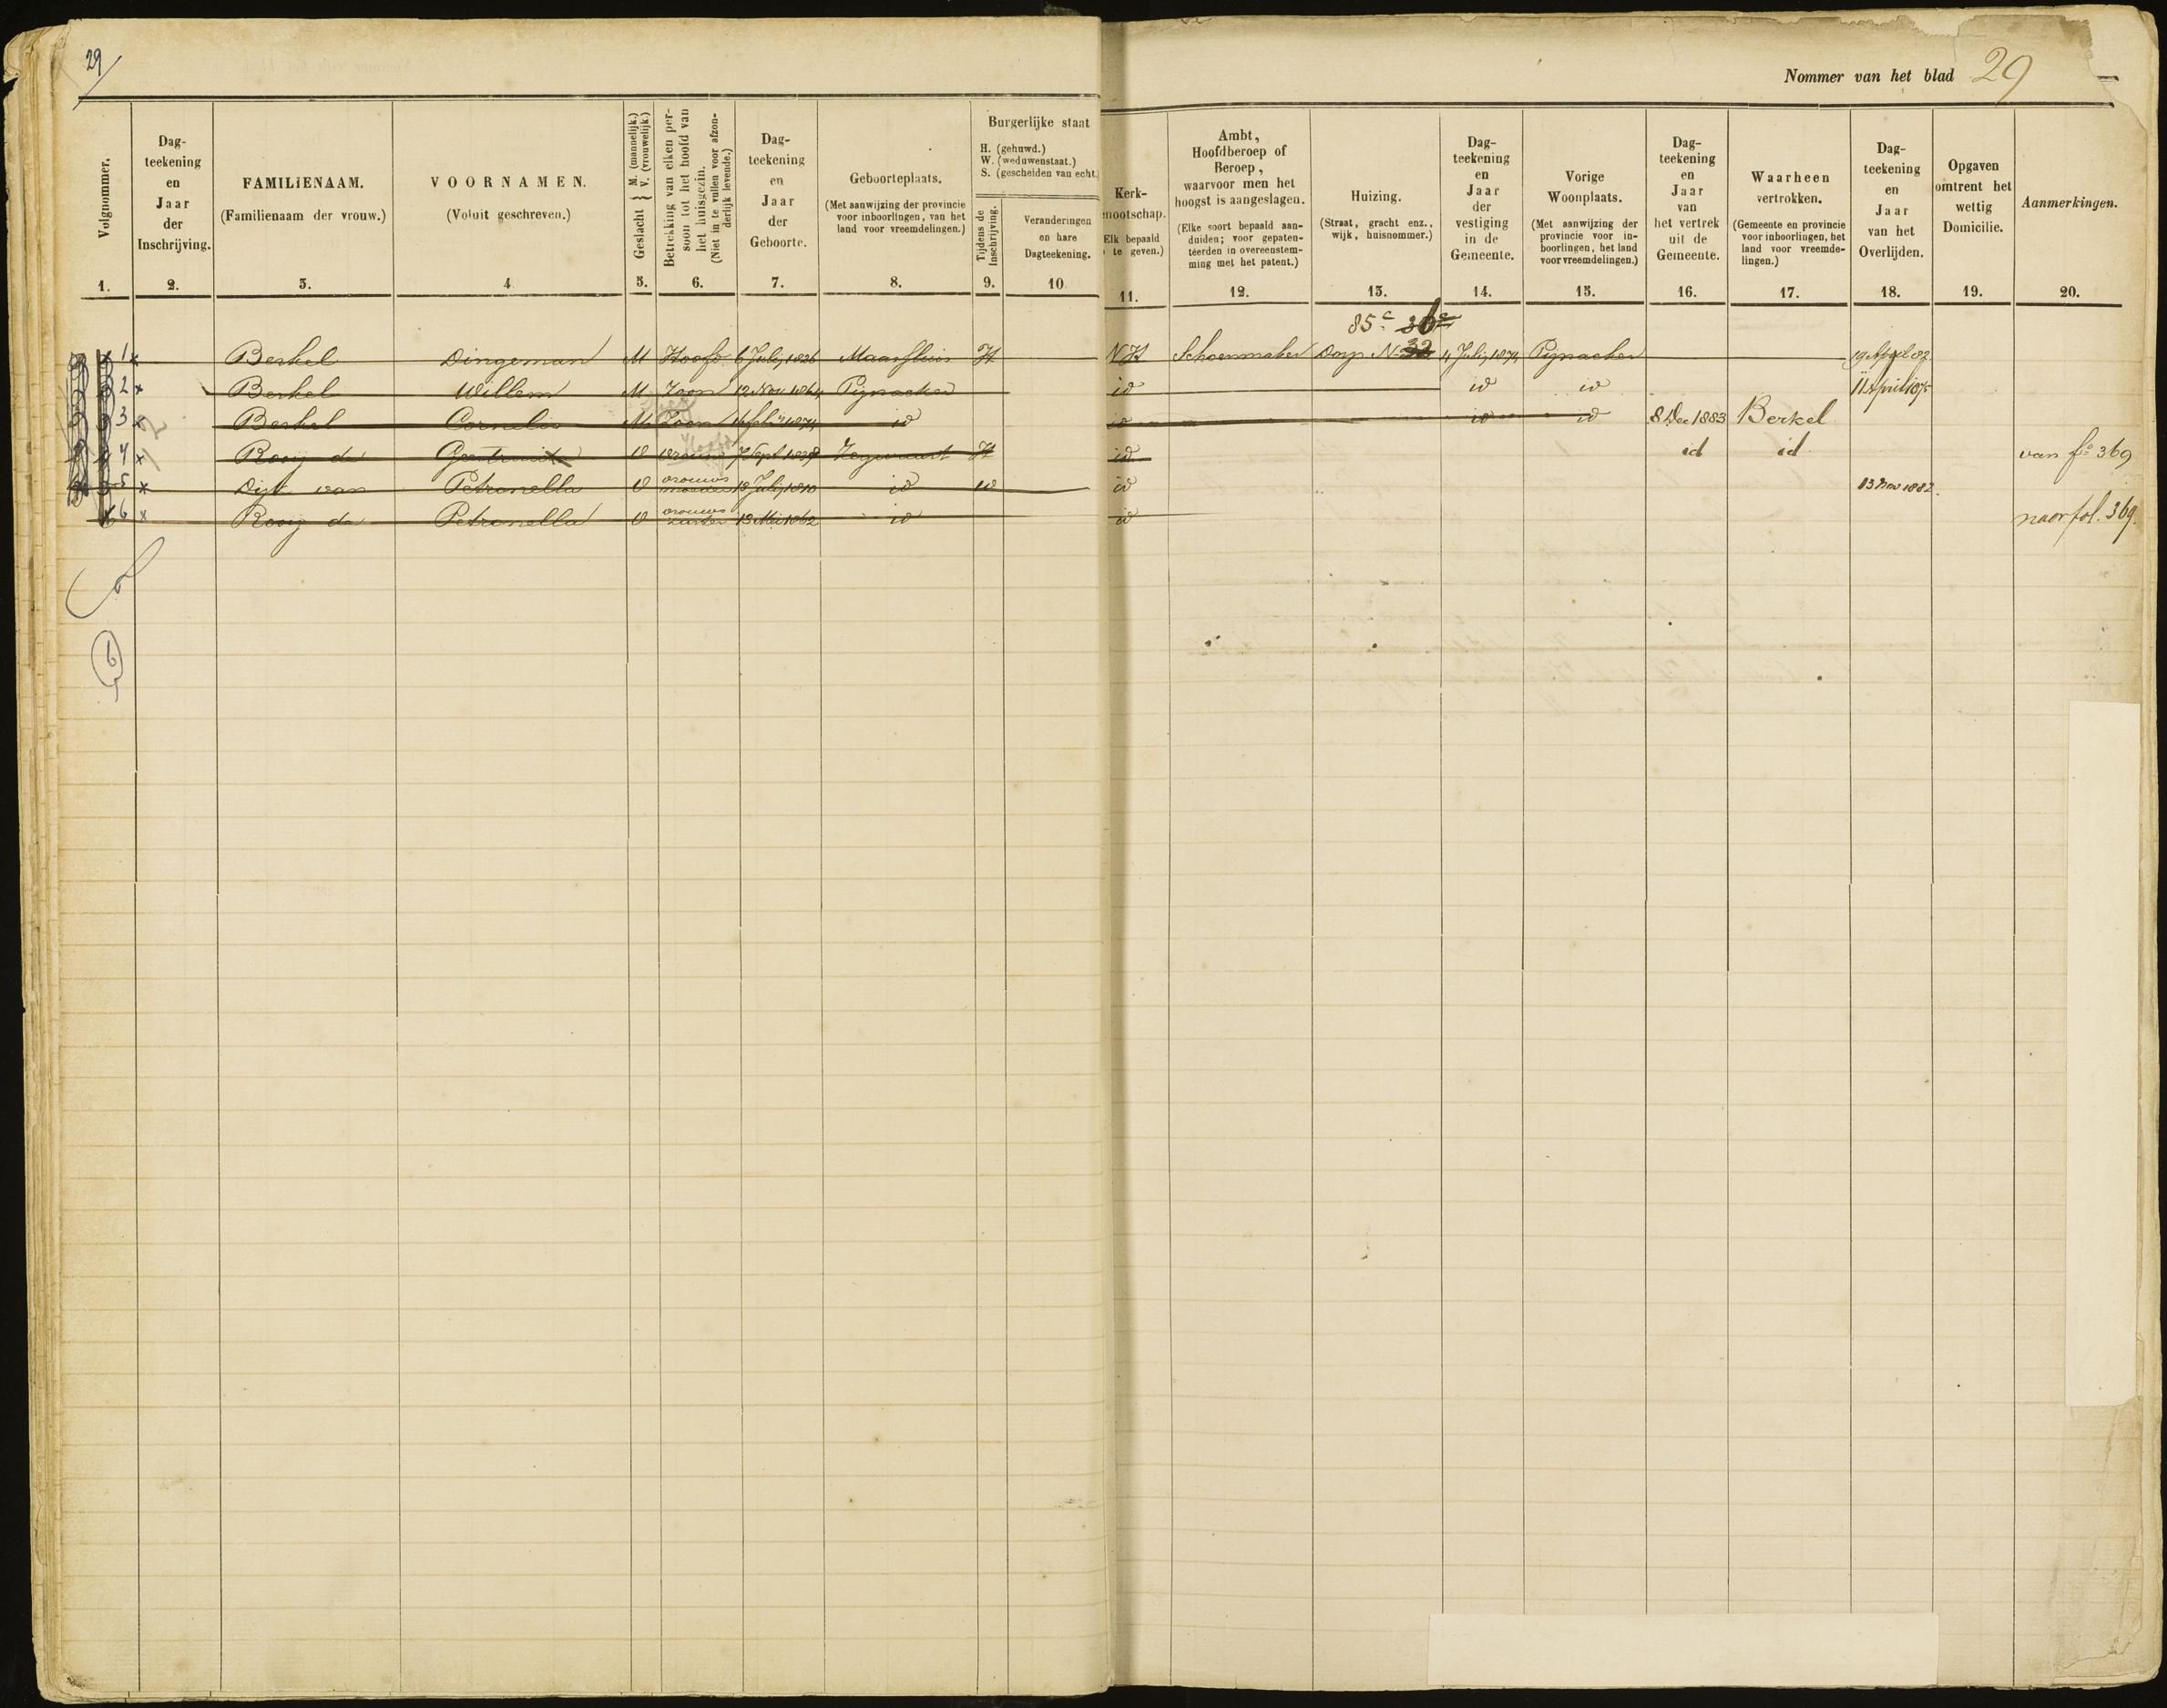 29
Nommer van het blad 29
Volgnommer.
1.
Dag-
teekening
en
Jaar
der
Inschrijving.
2.
FAMILIENAAM.
(Familienaam der vrouw.)
3.
VOORNAMEN.
(Voluit geschreven.)
4.
Geslacht { M. (mannelijk.) V. (vrouwelijk.)
5.
Betrekking van elken per-
soon tot het hoofd van
het huisgezin.
(Niet in te vullen voor afzon-
derlijk levende.)
6.
Dag-
teekening
en
Jaar
der
Geboorte.
7.
Geboorteplaats.
(Met aanwijzing der provincie
voor inboorlingen, van het
land voor vreemdelingen.)
8.
Burgerlijke staat
H. (gehuwd.)
W. (weduwenstaat.)
S. (gescheiden van echt.
Tijdens de
Inschrijving.
9.
Veranderingen
en hare
Dagteekening.
10.
Kerk-
nootschap.
Elk bepaald
te geven.)
11.
Ambt,
Hoofdberoep of
Beroep,
waarvoor men het
hoogst is aangeslagen.
(Elke soort bepaald aan-
duiden; voor gepaten-
teerden in overeenstem-
ming met het patent.)
12.
Huizing.
(Straat, gracht enz.,
wijk, huisnommer.)
13.
Dag-
teekening
en
Jaar
der
vestiging
in de
Gemeente.
14.
Vorige
Woonplaats.
(Met aanwijzing der
provincie voor in-
boorlingen, het land
voor vreemdelingen.)
15.
Dag-
teekening
en
Jaar
van
het vertrek
uit de
Gemeente.
16.
Waarheen
vertrokken.
(Gemeente en provincie
voor inboorlingen, het
land voor vreemde-
lingen.)
17.
Dag-
teekening
en
Jaar
van het
Overlijden.
18.
Opgaven
omtrent het
wettig
Domicilie.
19.
Aanmerkingen.
20.
85c
1 Berkel Dingeman M Hoofd 6 July 1826 Maassluis H NH Schoenmaker Dorp N 32 4 July 1874 Pijnacker 19 April 82
2 Berkel Willem M Zoon 12 Nov 1864 Pijnacker id id id 11 April 1875
3 Berkel Cornelis M Zoon 1874 id id id id 8 Dec 1883 Berkel
4 Rooij de Geertruida V vrouw 7 Sept Zegwaart H id id id van fo 369
5 Dijk van Petronella V vrouws moeder 18 July 1810 id W id 13 Nov 1882.
6 Rooij de Petronella V vrouws zuster 13 Mei 1862 id id naar fol. 369.
6